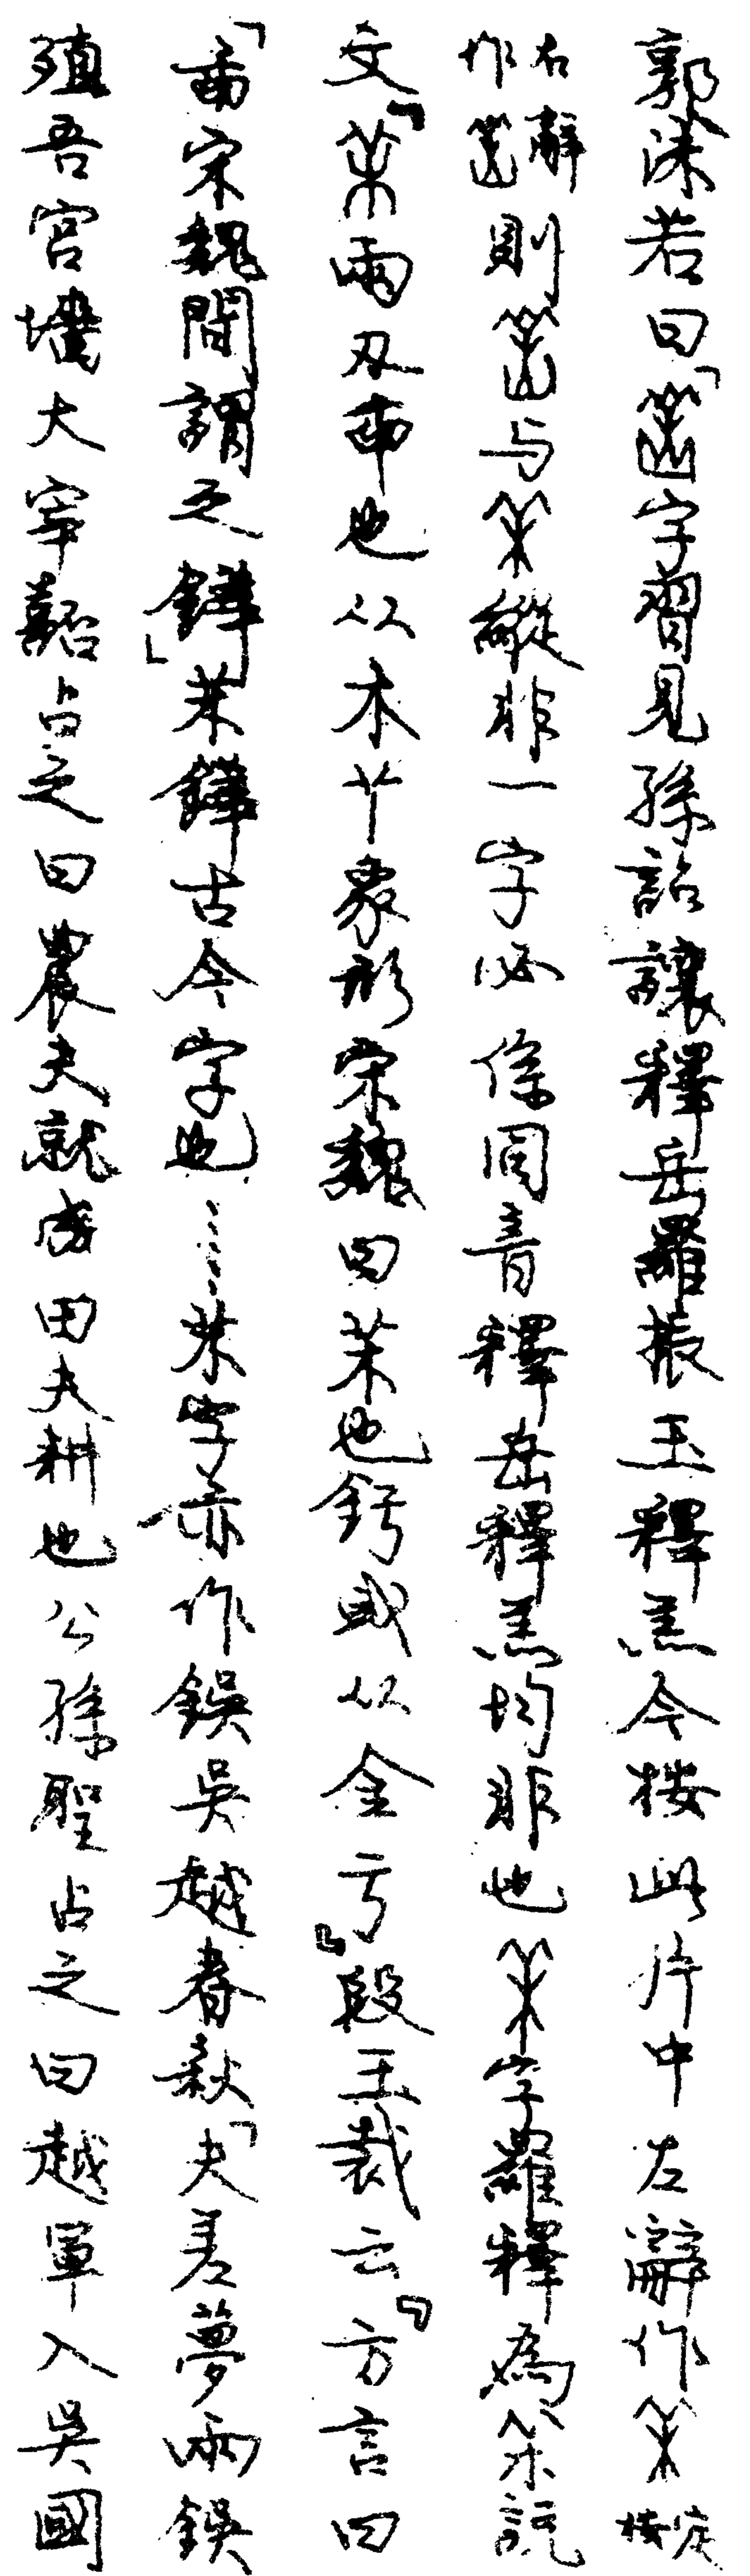 郭沫若曰「字習見孫詒讓釋岳羅振玉釋羔今按此片中左辭作按定
右辭作則与縱非一字必係同音釋岳釋羔均非也字羅釋為釆說
文『㭒兩刃臿也从木丫象形宋魏曰㭒也釫或从金亏』段玉裁云『方言曰
「臿宋魏間謂之鏵」㭒鏵古今字也……㭒字亦作鋘吳越春秋「夫差夢兩鋘
殖吾宮墻大宰嚭占之曰農夫就成田夫耕也公孫聖占之曰越軍入吳國